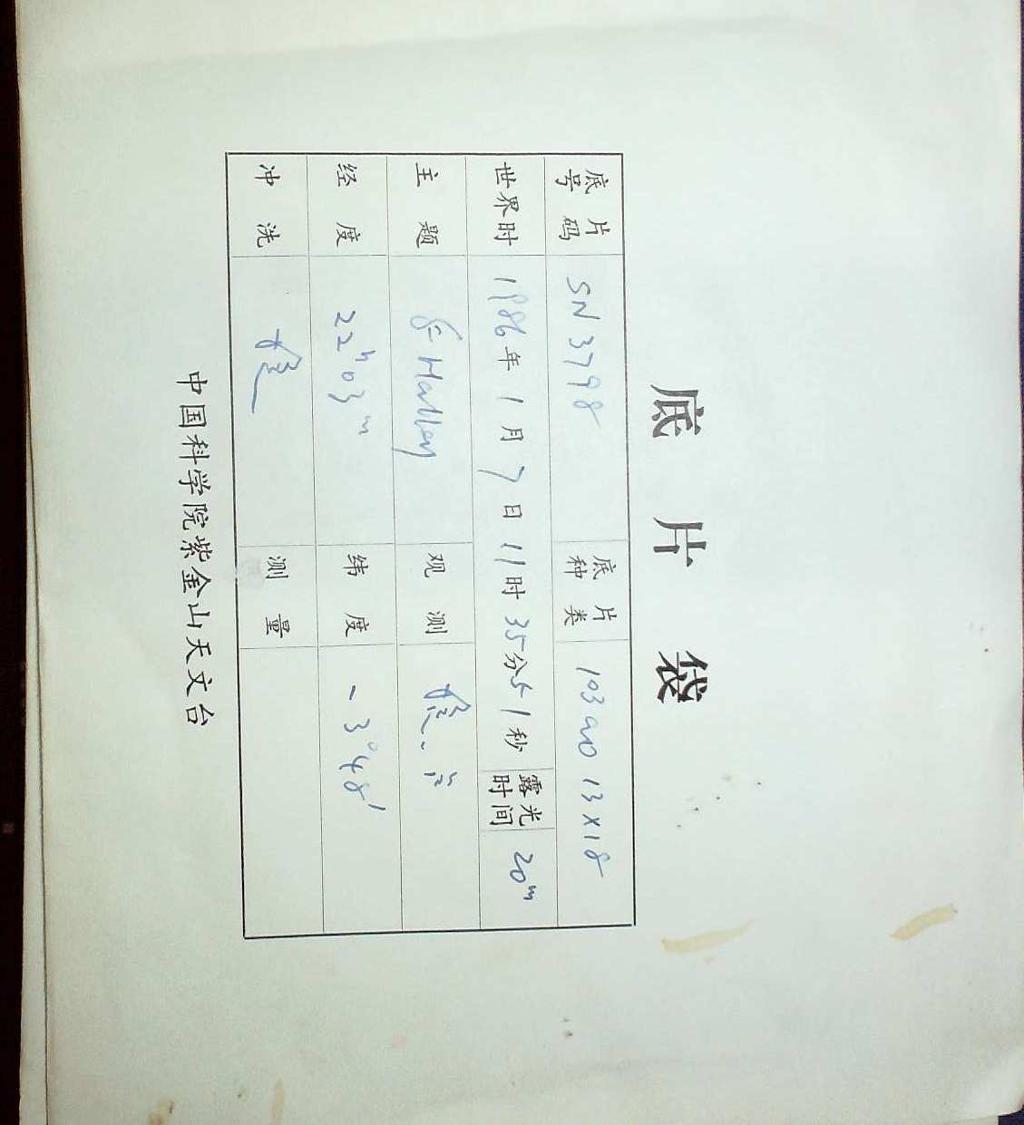 底片袋
底片号码 SN3798 底片种类 103aO 13×18
世界时 1986年1月7日11时35分51秒 露光时间 20m
主题 Halley 观测
经度 22h03m 纬度 -3°48'
冲洗 测量
中国科学院紫金山天文台